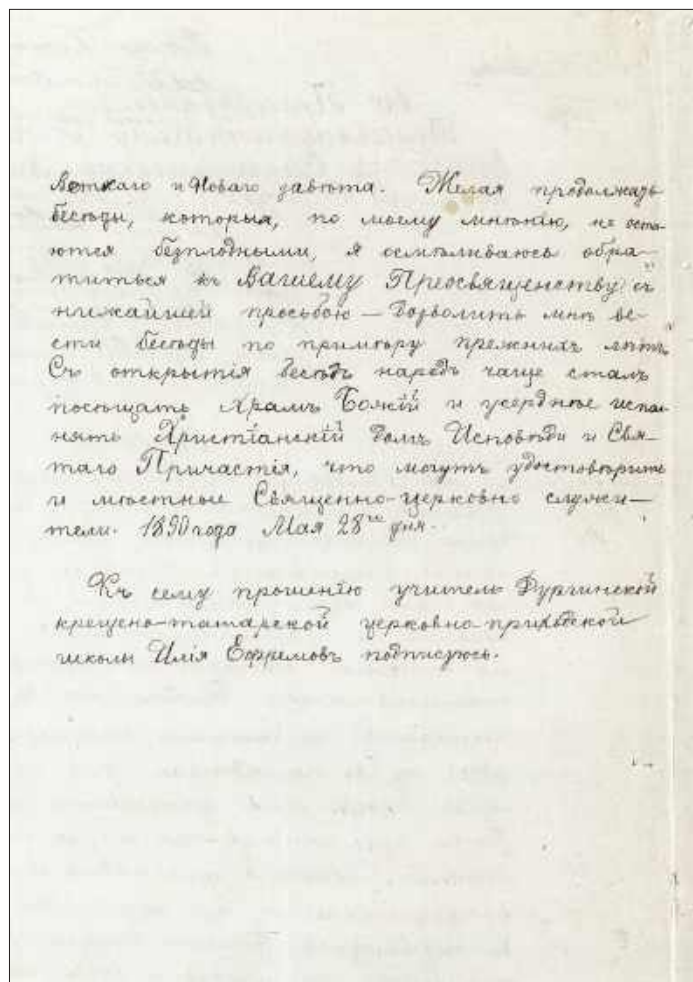 Ветхаго и Новаго завѣта. Желая продолжать
бесѣды, которыя, по моему мнѣнію, не оста-
ются безплодными, я осмѣливаюсь обра-
титься къ Вашему Преосвященству съ
нижайшей просьбою — дозволить мнѣ ве-
сти бесѣды по примѣру прежнихъ лѣтъ.
Съ открытія бесѣдъ народъ чаще сталъ
посѣщать Храмъ Божій и усерднѣе испол-
нять Христіанскій долгъ Исповѣди и Свя-
таго Причастія, что могутъ удостовѣрить
и мѣстные Священно-церковно служи-
тели. 1890 года Мая 28го дня.
Къ сему прошенію учитель
крещено-татарской церковно-приходской
школы Илія Ефремовъ подписуюсь.